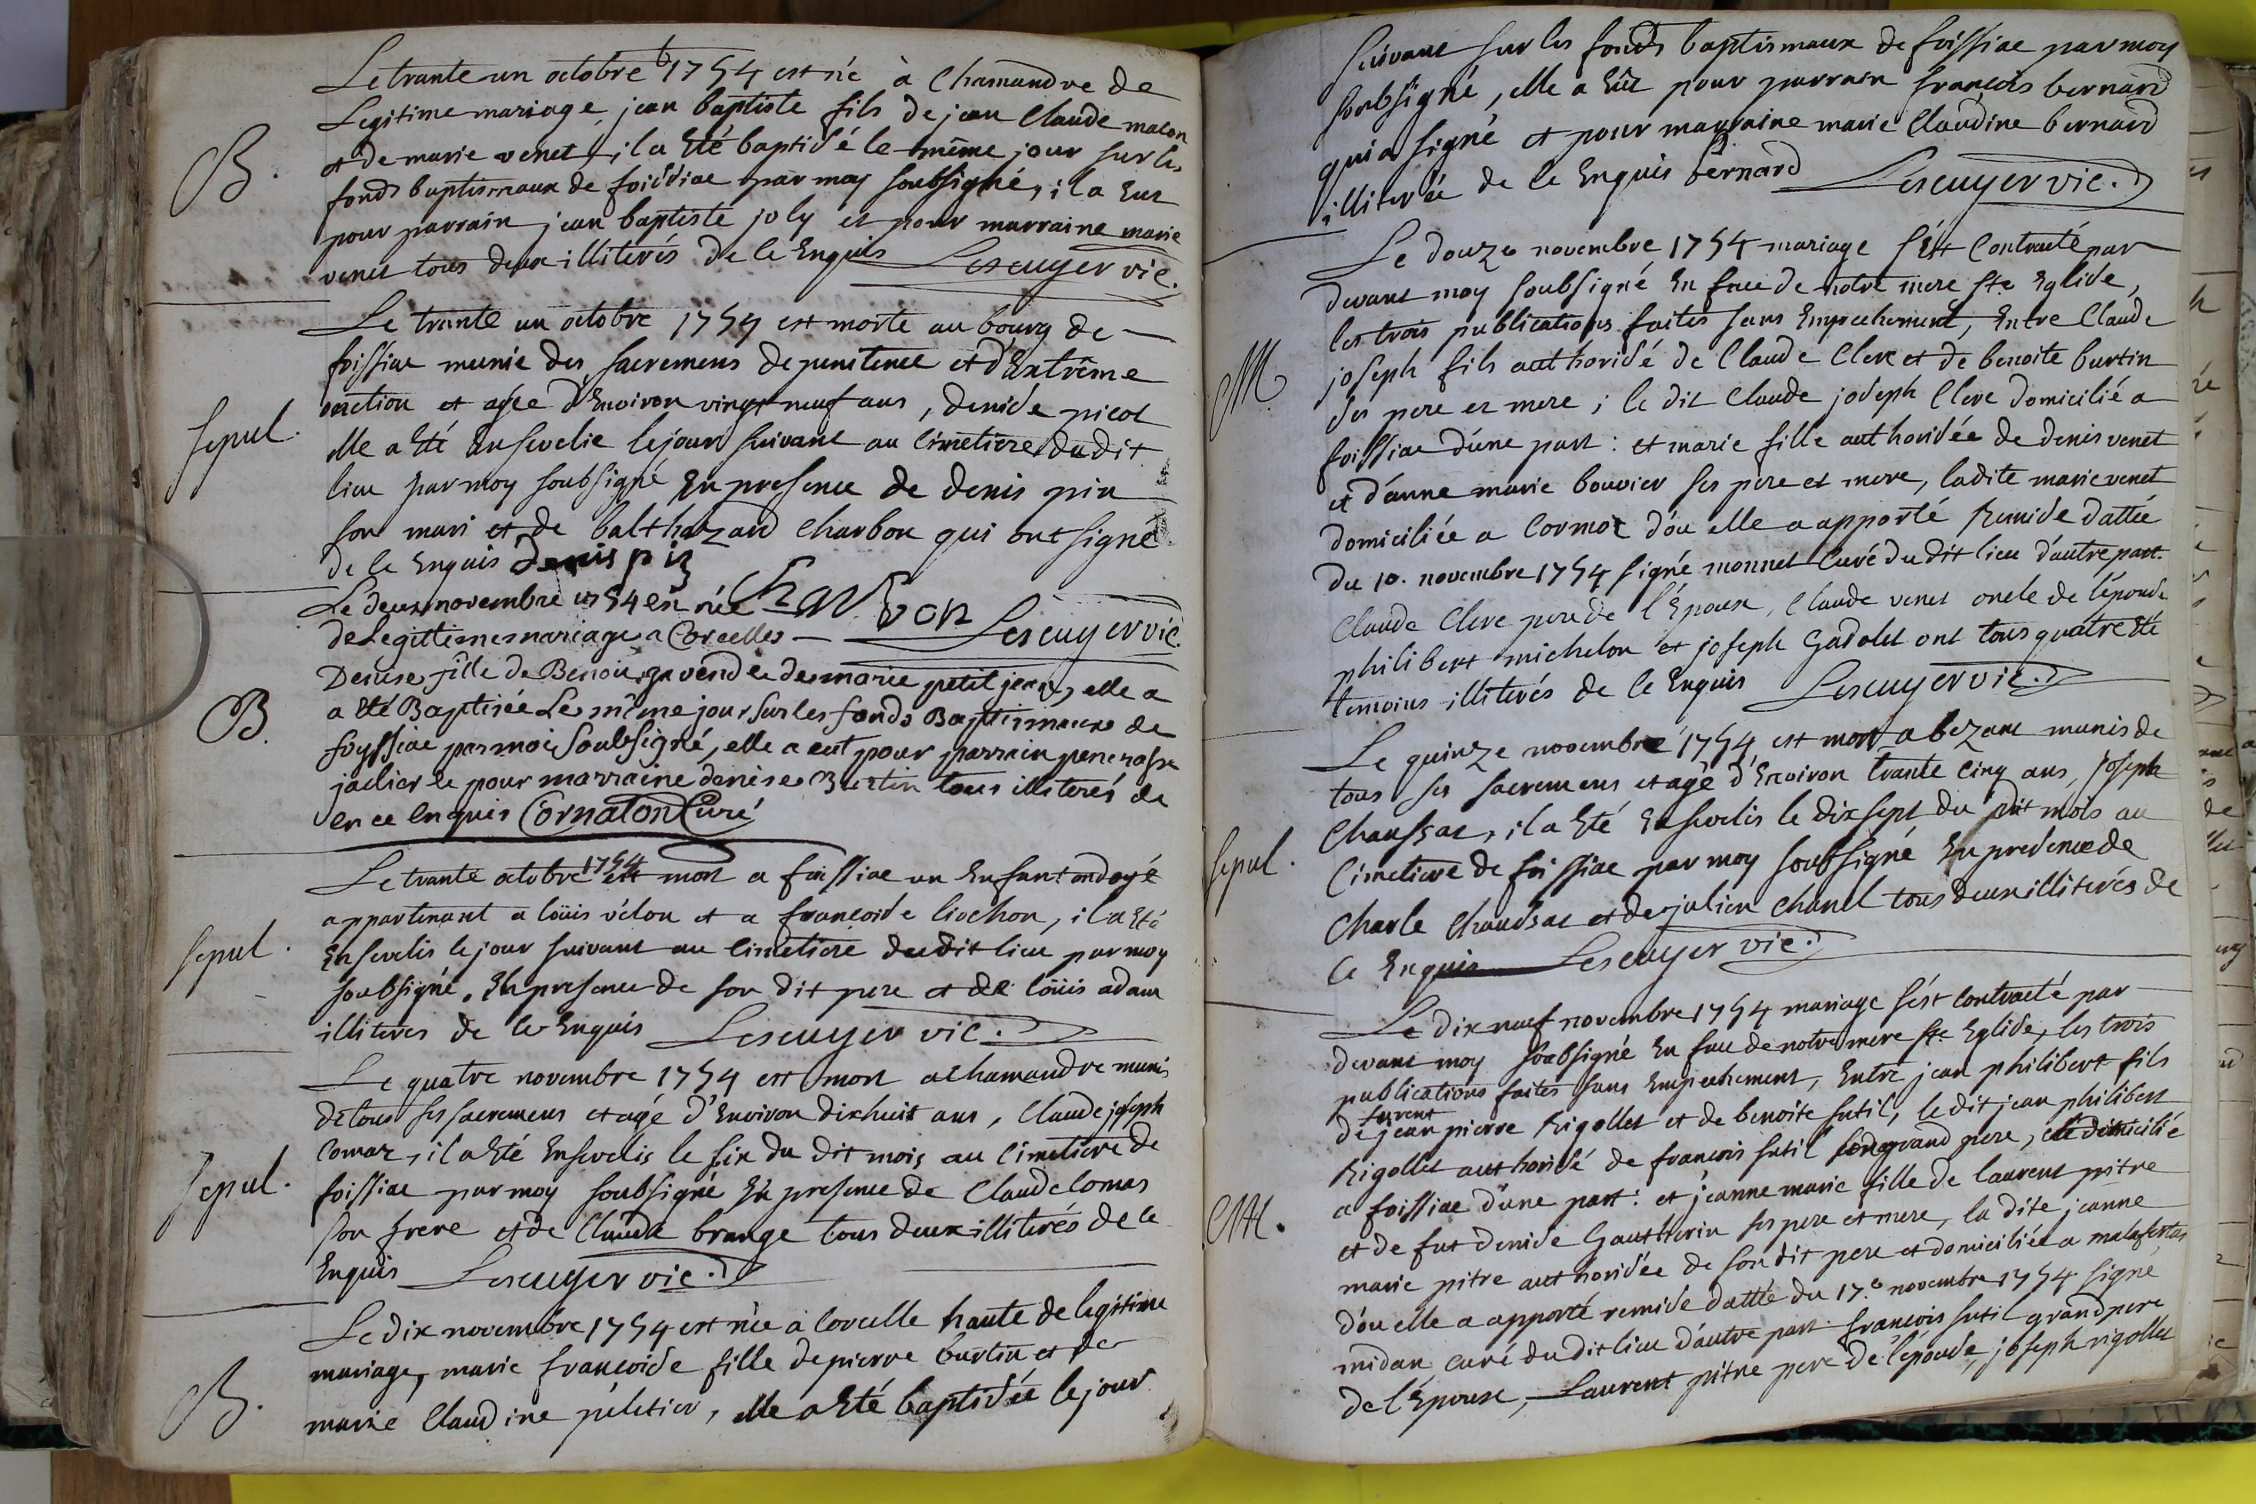 Le trante un octobre 1754 est né à Chamandre de
B. Legitime mariage, jean baptiste fils de jean Claude macon
et de marie venet, il a Eté baptisé le même jour sur les
fonds baptismaux de foissiac par moy soubsigné, il a Eut
pour parrain jean baptiste joly et pour marraine marie
venet tous deux illiterés de ce Enquis Lescuyer vic.
Le trante un octobre 1754 est morte au bourg de
foissiac munie des sacremens de penitence et d'Extrême
onction et agée d'Environ vingt neuf ans, denise picot
Sepul. elle a Eté Ensevelie le jour suivant au Cimetiere du dit
lieu par moy soubsigné En presence de denis pin
son mari et de balthazard Charbon qui ont signé
de ce Enquis denis pin
Charbon
Lescuyer vic.
Le deux novembre 1754 est née
de Legittime mariage a Corcelles
Denise fille de Benoit et de marie petit jean, elle a
B. a été Baptisée Le même jour sur les fonds Baptismaux de
foyssiac par moi Soubsigné, elle a eut pour parrain
et pour marraine denise Burtin tous illiterés de
en ce enquis Cornaton Curé
Le trante octobre 1754 est mort a foissiac un Enfant ondoyé
appartenant a loüis vélon et a francoise liochon, il a Eté
Sepul. Ensevelis le jour suivant au Cimetiere du dit lieu par moy
soubsigné. En presence de son dit pere et de loüis adam
illiteres de ce Enquis Lescuyer vic.
Le quatre novembre 1754 est mort a Chamandre munis
de tous ses sacremens et agé d'Environ dix huit ans, Claude joseph
Comas, il a Eté Ensevelis le six du dit mois au Cimetiere de
Sepul. foissiac par moy soubsigné En presence de Claude Comas
son frere et de Claude brange tous deux illiterés de ce
Enquis Lescuyer vic.
Le dix novembre 1754 est née à Corcelle haute de legitime
mariage, marie francoise fille de pierre burtin et de
B. marie Claudine peletier, elle a Eté baptisée le jour
suivant sur les fonds baptismaux de foissiac par moy
soubsigné, elle a Eüt pour parrain francois bernard
qui a signé et pour marraine marie Claudine bernard
illiterée de ce Enquis bernard Lescuyer vic.
Le douze novembre 1754 mariage s'est Contracté par
devant moy soubsigné En face de notre mere ste Eglise,
les trois publications faites sans Empechement, Entre Claude
M. joseph fils authorisé de Claude Clerc et de benoite burtin
ses pere et mere; le dit Claude joseph Clerc domicilié a
foissiac d'une part: et marie fille authorisée de denis venet
et d'anne marie bouvier ses pere et mere, la dite marie venet
domiciliée a Cormoz d'ou elle a apporté Remise dattée
du 10. novembre 1754 signé monnet Curé du dit lieu d'autre part.
Claude Clerc pere de l'Epoux, Claude venet oncle de l'épouse
philibert michelon et joseph Gadolet ont tous quatre Eté
temoins illiterés de ce Enquis Lescuyer vic.
Le quinze novembre 1754 est mort a bezanc munis de
tous ses sacremens et agé d'Environ trante Cinq ans, joseph
Chaussat, il a Eté Ensevelis le dix sept du dit mois au
Sepul. Cimetiere de foissiac par moy soubsigné En presence de
Charle Chaussat et de julien Chanel tous deux illiterés de
Ce Enquis Lescuyer vic.
Le dix neuf novembre 1754 mariage s'est Contracté par
devant moy soubsigné En face de notre mere ste Eglise, les trois
publications faites sans Empechement, Entre jean philibert fils
de jean pierre Rigollet et de benoite sutil, le dit jean philibert
Rigollet authorisé de francois sutil son grand pere, domicilié
M. a foissiac d'une part: et jeanne marie fille de laurent pitre
et de fut denise Gautherin ses pere et mere, la dite jeanne
marie pitre authorisée de son dit pere et domiciliée a malafretas
d'ou elle a apporté remise dattée du 17.e novembre 1754 signé
midan, curé du dit lieu d'autre part. francois sutil grand pere
de l'Epoux, Laurent pitre pere de l'épouse, joseph rigollet